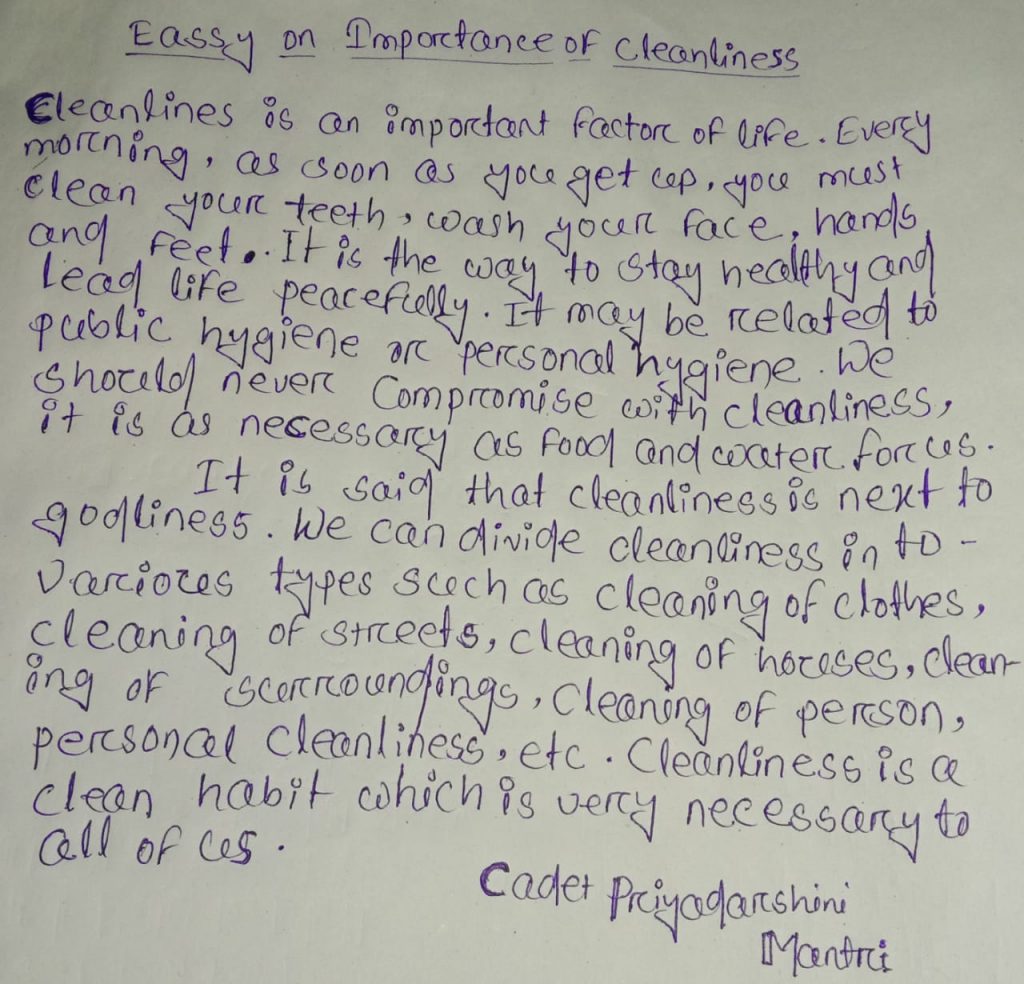 Eassy on Importance of Cleanliness
Cleanlines is an important factor of life. Every
morning, as soon as you get up, you must
clean your teeth, wash your face, hands,
and feet. It is the way to stay healthy and
Lead life peacefully. It may be related to
public hygiene or personal hygiene. We
should never Compromise with cleanliness,
it is as necessary as food and water for us.
It is said that cleanliness is next to
godliness. We can divide cleanliness in to -
various types such as cleaning of clothes,
cleaning of streets, cleaning of houses, clean-
ing of surroundings, Cleaning of person,
personal Cleanliness, etc. Cleanliness is a
clean habit which is very necessary to
all of us.
Cadet Priyadarshini
Mantri